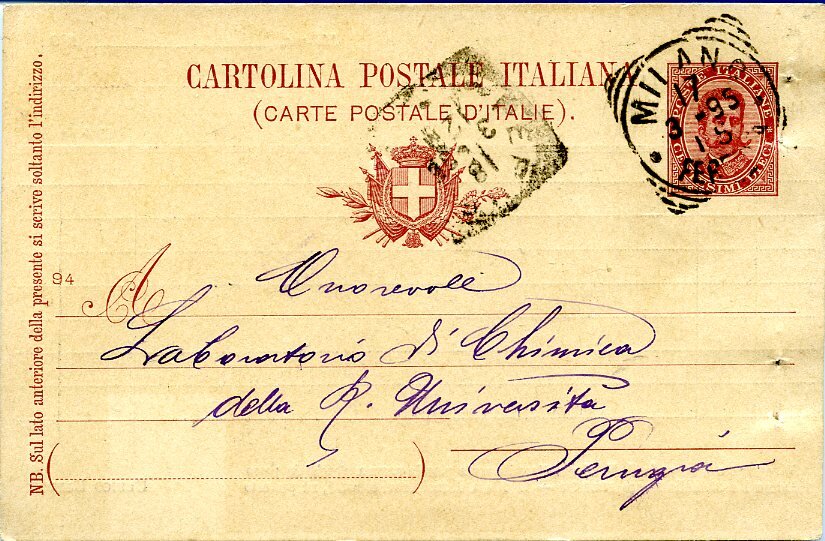 CARTOLINA POSTALE ITALIANA
(CARTE POSTALE D'ITALIE).
MILANO
17
3-95
POSTE ITALIANE
18
NB. Sul lato anteriore della presente si scrive soltanto l'indirizzo.
94
A
Onorevole
Laboratorio di Chimica
della R. Università
Perugia